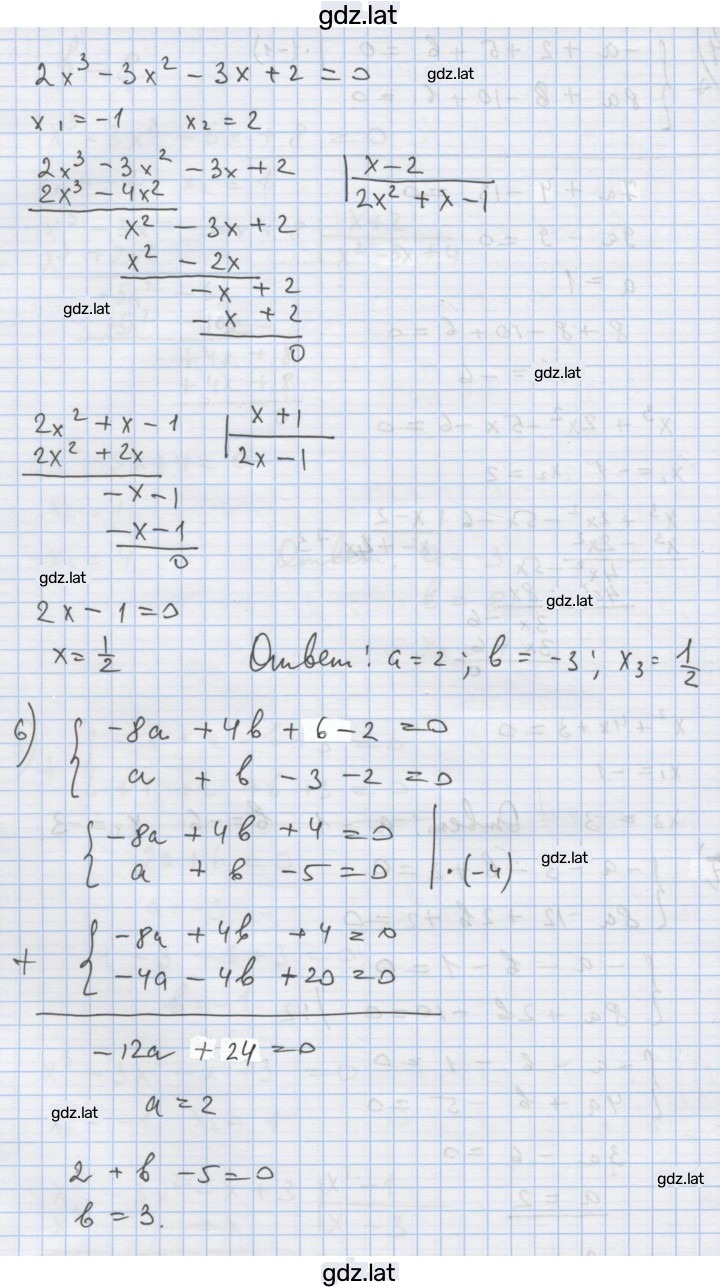 gdz.lat
2x³ - 3x² - 3x + 2 = 0
gdz.lat
x₁ = -1 x₂ = 2
2x³ - 3x² - 3x + 2 | x - 2
2x³ - 4x² 2x² + x - 1
x² - 3x + 2
x² - 2x
-x + 2
gdz.lat
-x + 2
0
gdz.lat
2x² + x - 1 | x + 1
2x² + 2x 2x - 1
-x - 1
-x - 1
0
gdz.lat
2x - 1 = 0
gdz.lat
x = 1/2 Ответ: a = 2; b = -3; x₃ = 1/2
б) { -8a + 4b + 6 - 2 = 0
a + b - 3 - 2 = 0
{ -8a + 4b + 4 = 0
a + b - 5 = 0 | ·(-4)
gdz.lat
+ { -8a + 4b + 4 = 0
-4a - 4b + 20 = 0
-12a + 24 = 0
a = 2
gdz.lat
2 + b - 5 = 0
gdz.lat
b = 3.
gdz.lat